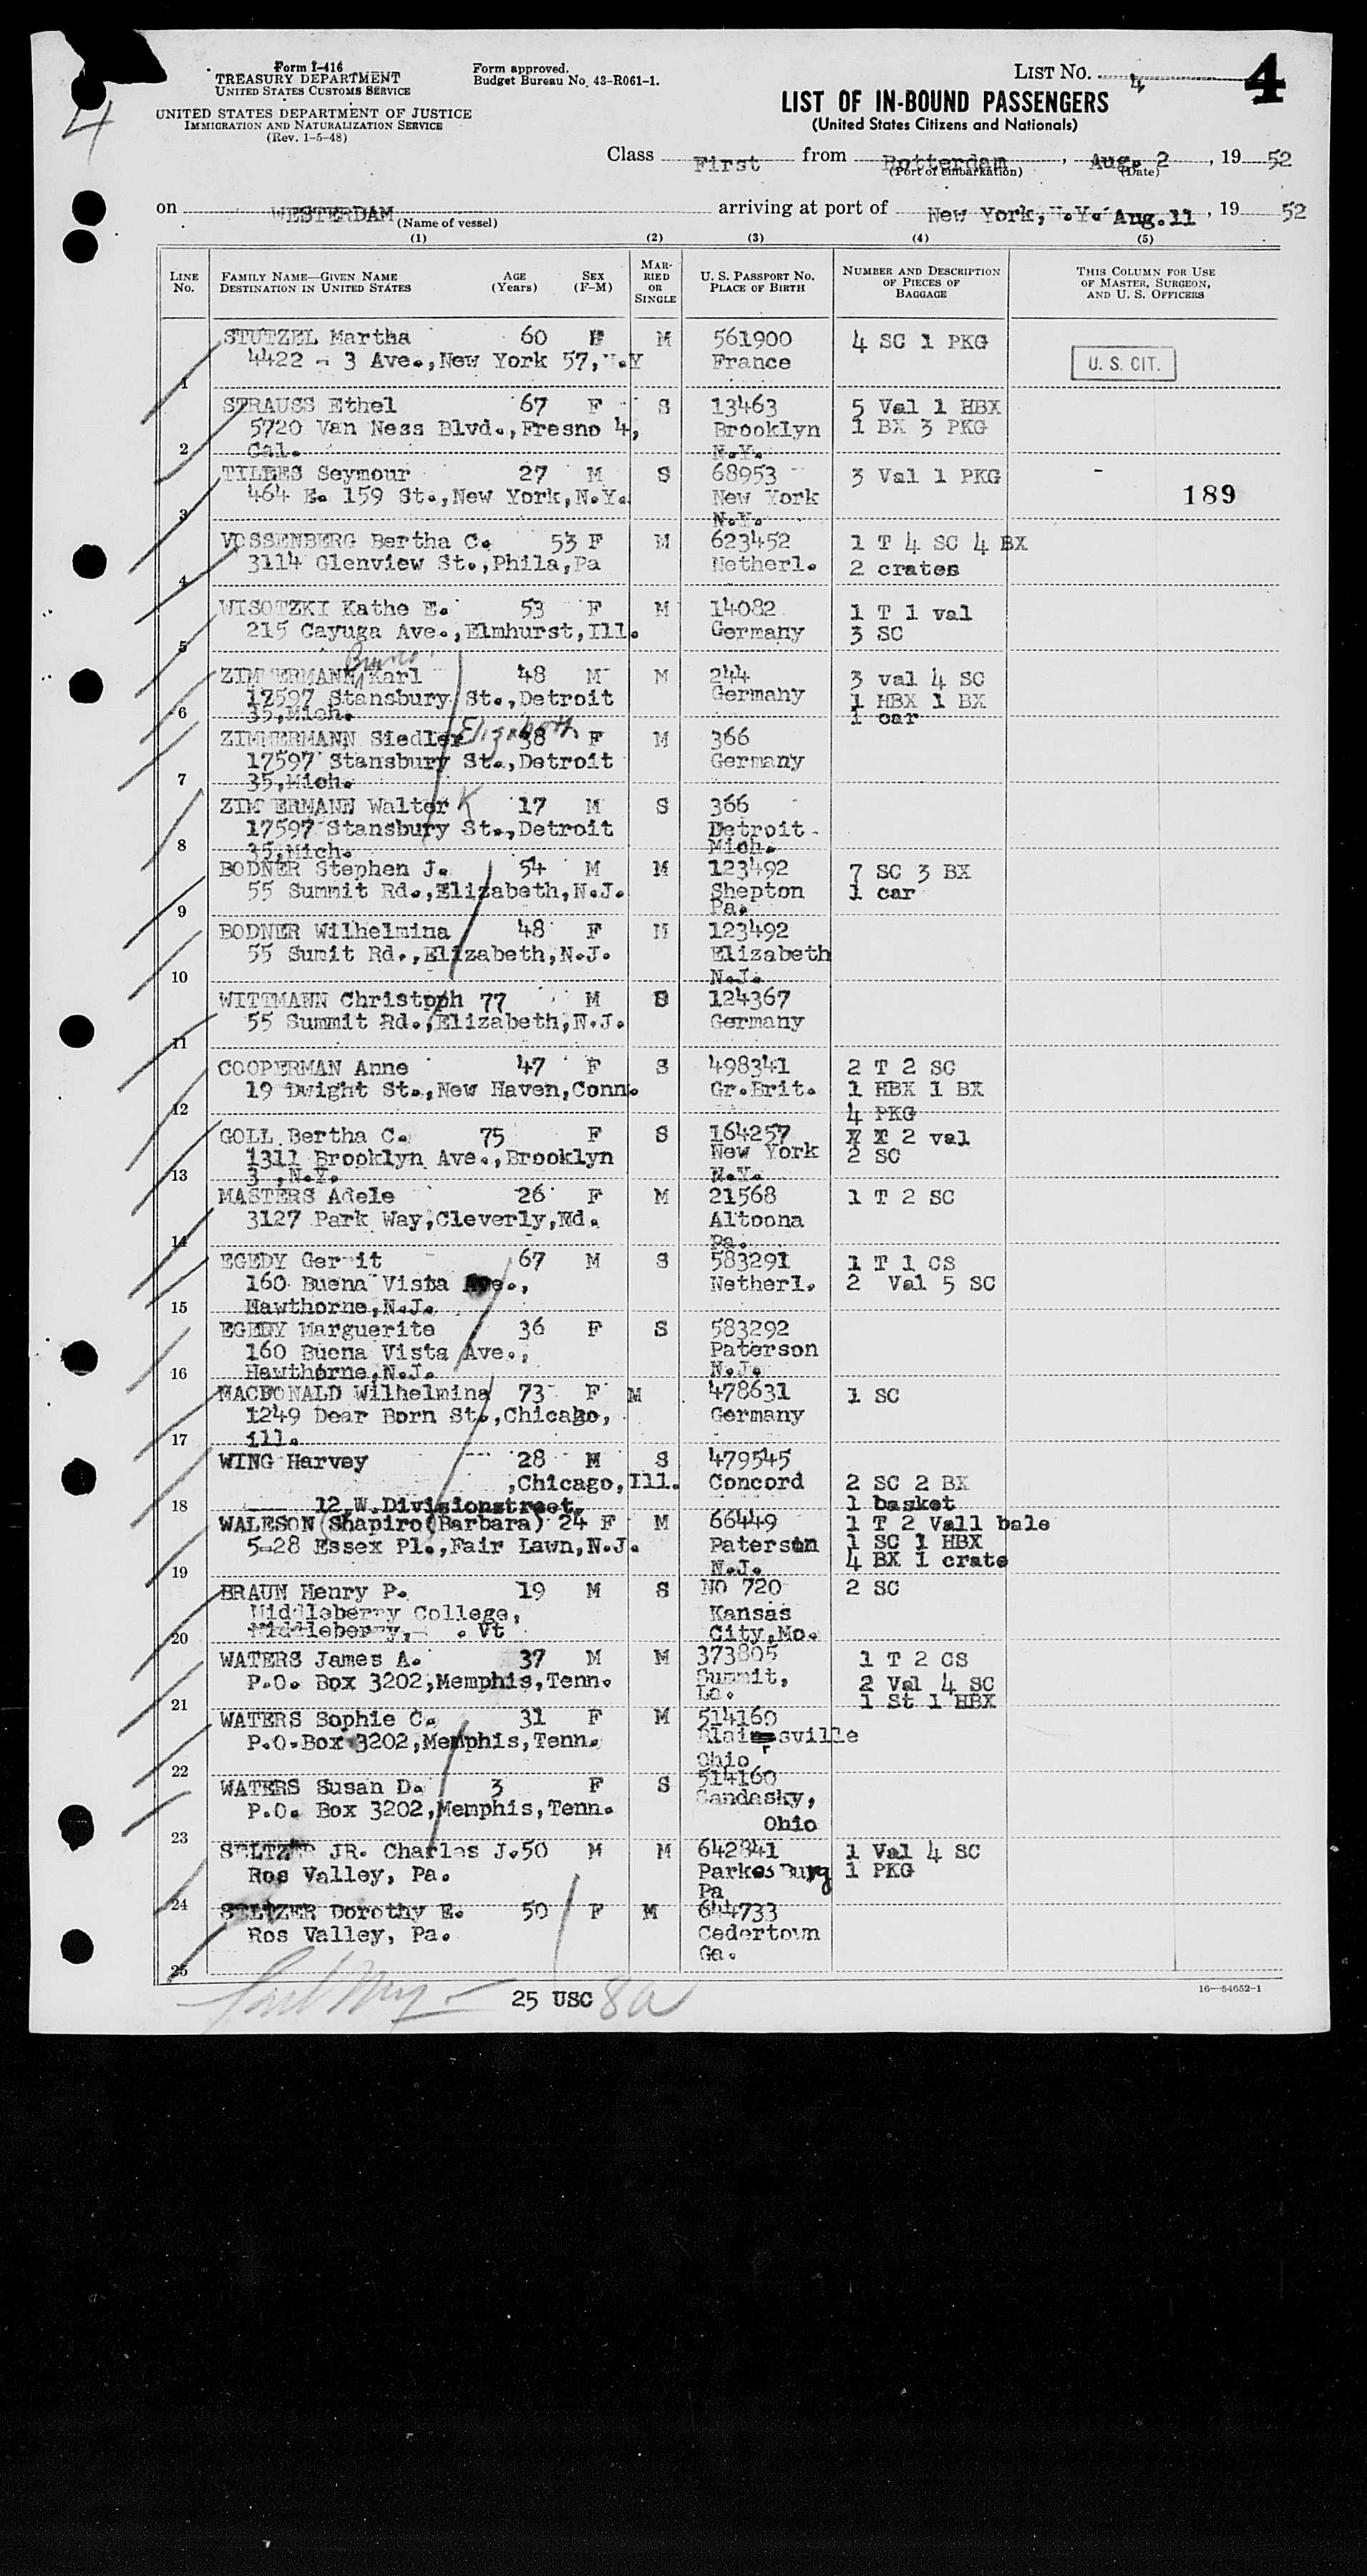 Form I-416
TREASURY DEPARTMENT
UNITED STATES CUSTOMS SERVICE
UNITED STATES DEPARTMENT OF JUSTICE
IMMIGRATION AND NATURALIZATION SERVICE
(Rev. 1-5-48)
Form approved.
Budget Bureau No. 43-R061-1.
LIST No. 4
4
4
LIST OF IN-BOUND PASSENGERS
(United States Citizens and Nationals)
Class First from Rotterdam, Aug. 2, 1952
(Port of embarkation) (Date)
on WESTERDAM arriving at port of New York, N.Y. Aug.11, 1952
(Name of vessel)
(1) (2) (3) (4) (5)
LINE No. FAMILY NAME—GIVEN NAME DESTINATION IN UNITED STATES AGE (Years) SEX (F-M) MARRIED OR SINGLE U. S. PASSPORT No. PLACE OF BIRTH NUMBER AND DESCRIPTION OF PIECES OF BAGGAGE THIS COLUMN FOR USE OF MASTER, SURGEON, AND U. S. OFFICERS
STUTZEL Martha 60 F M 561900 4 SC 1 PKG
4422 - 3 Ave.,New York 57,N.Y France U. S. CIT.
1
STRAUSS Ethel 67 F S 13463 5 Val 1 HBX
5720 Van Ness Blvd.,Fresno 4, Brooklyn 1 BX 3 PKG
2 Cal. N.Y.
TILLES Seymour 27 M S 68953 3 Val 1 PKG
464 E. 159 St.,New York,N.Y. New York 189
3 N.Y.
VOSSENBERG Bertha C. 53 F M 623452 1 T 4 SC 4 BX
3114 Glenview St.,Phila,Pa Netherl. 2 crates
4
WISOTZKI Kathe E. 53 F M 14082 1 T 1 val
215 Cayuga Ave.,Elmhurst,Ill. Germany 3 SC
5
Bruno
ZIMMERMANN Karl 48 M M 244 3 val 4 SC
17597 Stansbury St.,Detroit Germany 1 HBX 1 BX
6 35,Mich. 1 car
Elizabeth
ZIMMERMANN Siedler 38 F M 366
17597 Stansbury St.,Detroit Germany
7 35,Mich.
ZIMMERMANN Walter K 17 M S 366
17597 Stansbury St.,Detroit Detroit
8 35,Mich. Mich.
BODNER Stephen J. 54 M M 123492 7 SC 3 BX
55 Summit Rd.,Elizabeth,N.J. Shepton 1 car
9 Pa.
BODNER Wilhelmina 48 F M 123492
55 Sumit Rd.,Elizabeth,N.J. Elizabeth
10 N.J.
WITTMANN Christoph 77 M S 124367
55 Summit Rd.,Elizabeth,N.J. Germany
11
COOPERMAN Anne 47 F S 498341 2 T 2 SC
19 Dwight St.,New Haven,Conn. Gr.Brit. 1 HBX 1 BX
12 4 PKG
GOLL Bertha C. 75 F S 164257 2 val
1311 Brooklyn Ave.,Brooklyn New York 2 SC
13 3 ,N.Y. N.Y.
MASTERS Adele 26 F M 21568 1 T 2 SC
3127 Park Way,Cleverly,Md. Altoona
14 Pa.
EGEDY Gerrit 67 M S 583291 1 T 1 CS
160 Buena Vista Ave., Netherl. 2 Val 5 SC
15 Hawthorne,N.J.
EGEDY Marguerite 36 F S 583292
160 Buena Vista Ave., Paterson
16 Hawthorne,N.J. N.J.
MACDONALD Wilhelmina 73 F M 478631 1 SC
1249 Dear Born St.,Chicago, Germany
17 ill.
WING Harvey 28 M S 479545
,Chicago,Ill. Concord 2 SC 2 BX
18 12 W.Divisionstreet 1 basket
WALESON (Shapiro(Barbara) 24 F M 66449 1 T 2 Val1 bale
5-28 Essex Pl.,Fair Lawn,N.J. Paterson 1 SC 1 HBX
19 N.J. 4 BX 1 crate
BRAUN Henry P. 19 M S NO 720 2 SC
Middleberry College, Kansas
20 Middleberry, . Vt City,Mo.
WATERS James A. 37 M M 373805 1 T 2 CS
P.O. Box 3202,Memphis,Tenn. Summit, 2 Val 4 SC
21 La. 1 St 1 HBX
WATERS Sophie C. 31 F M 514160
P.O.Box 3202,Memphis,Tenn.
22 Ohio
WATERS Susan D. 3 F S 514160
P.O. Box 3202,Memphis,Tenn. Sandasky,
23 Ohio
SELTZER JR. Charles J. 50 M M 642841 1 Val 4 SC
Ros Valley, Pa. Parkesburg 1 PKG
24 Pa
SELTZER Dorothy E. 50 F M 644733
Ros Valley, Pa. Cedertown
25 Ga.
25 USC 8a
16—54652-1